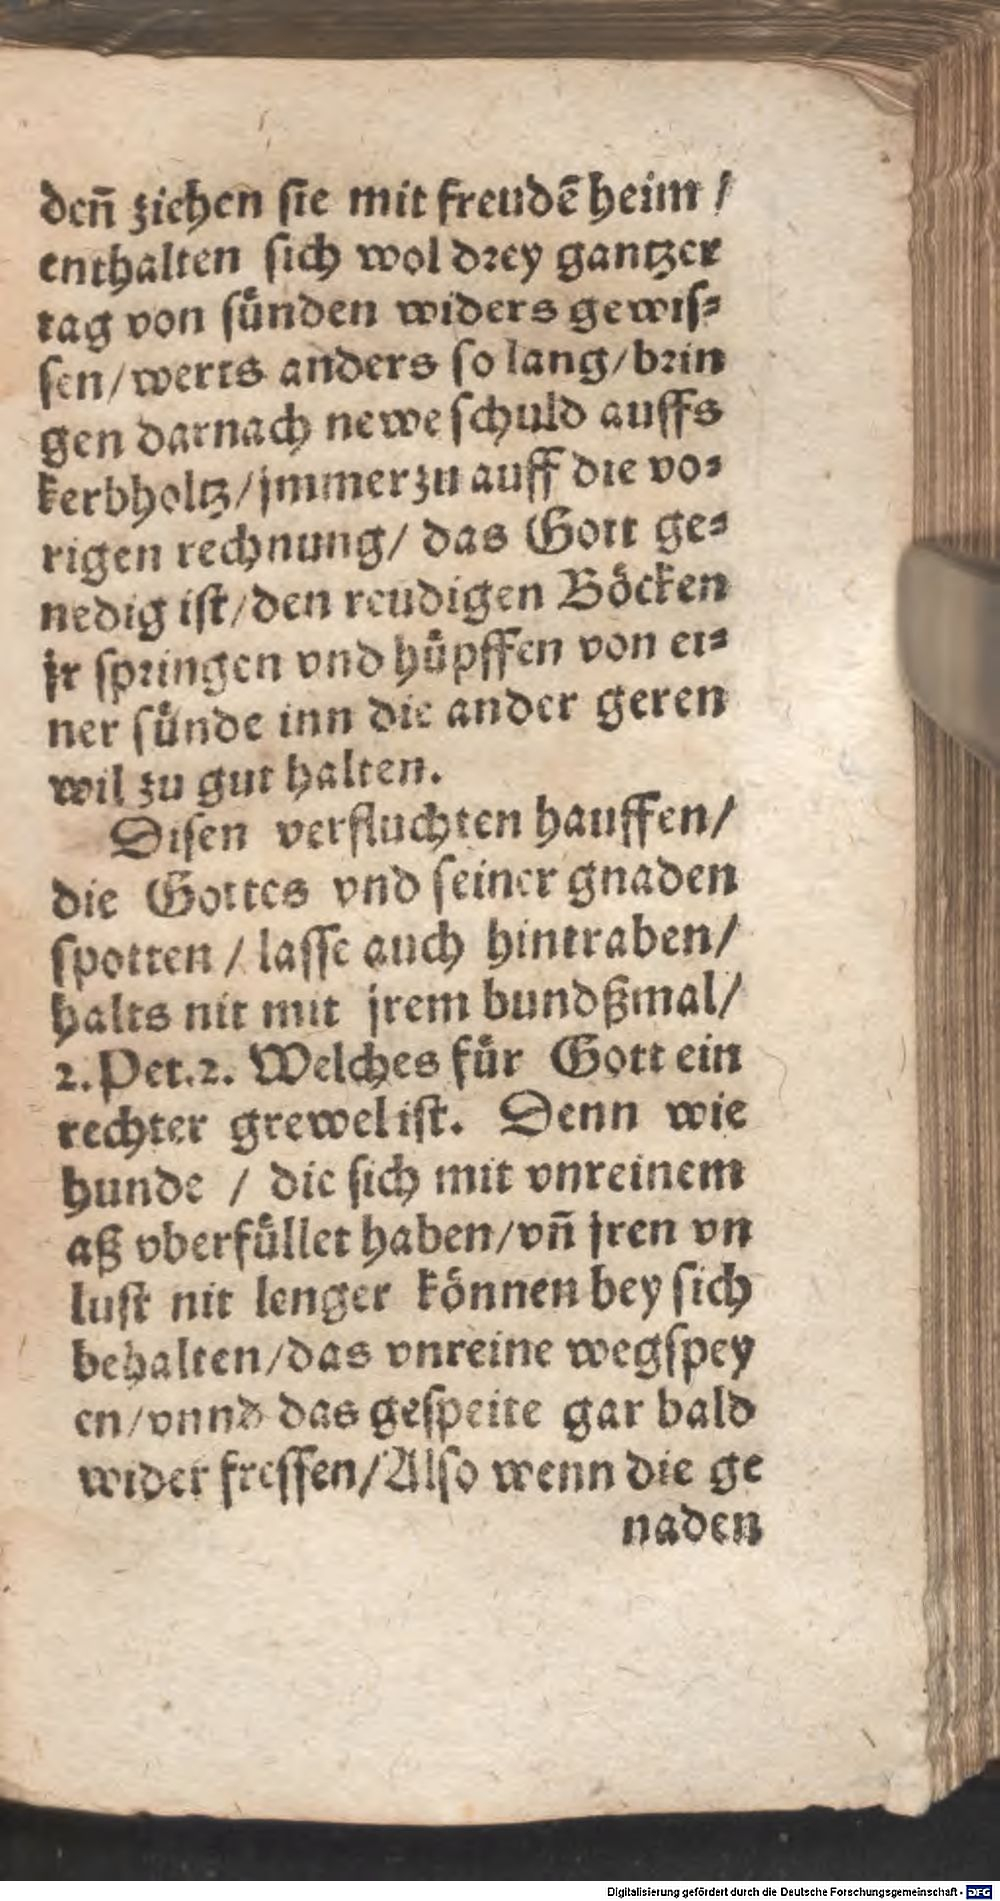 deñ ziehen sie mit freudē heim /
enthalten sich wol drey gantzer
tag von sünden widers gewis⸗
sen/werts anders so lang/brin
gen darnach newe schuld auffs
kerbholtz/jmmer zu auff die vo⸗
rigen rechnung/ das Gott ge⸗
nedig ist/den reudigen Böcken
jr springen vnd hüpffen von ei⸗
ner sünde inn die ander geren
wil zu gut halten.
Disen verfluchten hauffen/
die Gottes vnd seiner gnaden
spotten / lasse auch hintraben/
halts nit mit jrem bundßmal/
2. Pet.2. Welches für Gott ein
rechter grewel ist. Denn wie
hunde / die sich mit vnreinem
aß vberfüllet haben/vñ jren vn
lust nit lenger können bey sich
behalten/das vnreine wegspey
en/vnnd das gespeite gar bald
wider fressen/Also wenn die ge
naden
Digitalisierung gefördert durch die Deutsche Forschungsgemeinschaft - DFG